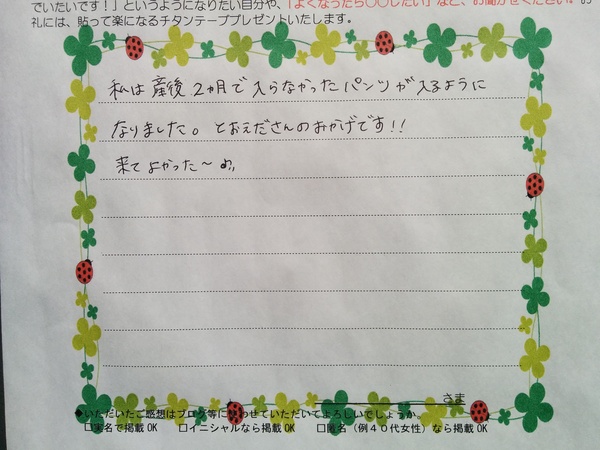 でいたいです！」というようになりたい自分や、「よくなったら〇〇したい」など、お聞かせください。お
礼には、貼って楽になるチタンテーププレゼントいたします。
私は産後2ヵ月で入らなかったパンツが入るように
なりました。とおえださんのおかげです!!
来てよかった〜
さま
◆いただいたご感想はブログ等に使わせていただいてよろしいでしょうか。
□実名で掲載OK □イニシャルなら掲載OK □匿名（例４０代女性）なら掲載OK